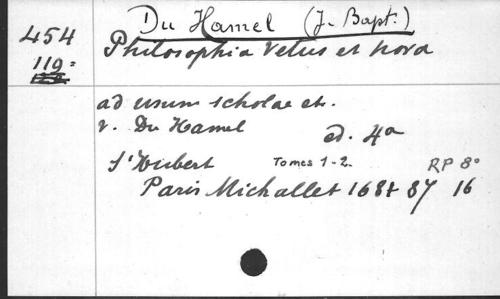 454
119=
Du Hamel (J. Bapt.)
Philosophia vetus et nova
ad usum scholae etc.
v. Du Hamel
ed. 4a
S'Hubert Tomes 1-2. RP 8°
Paris Michallet 1687 87 16